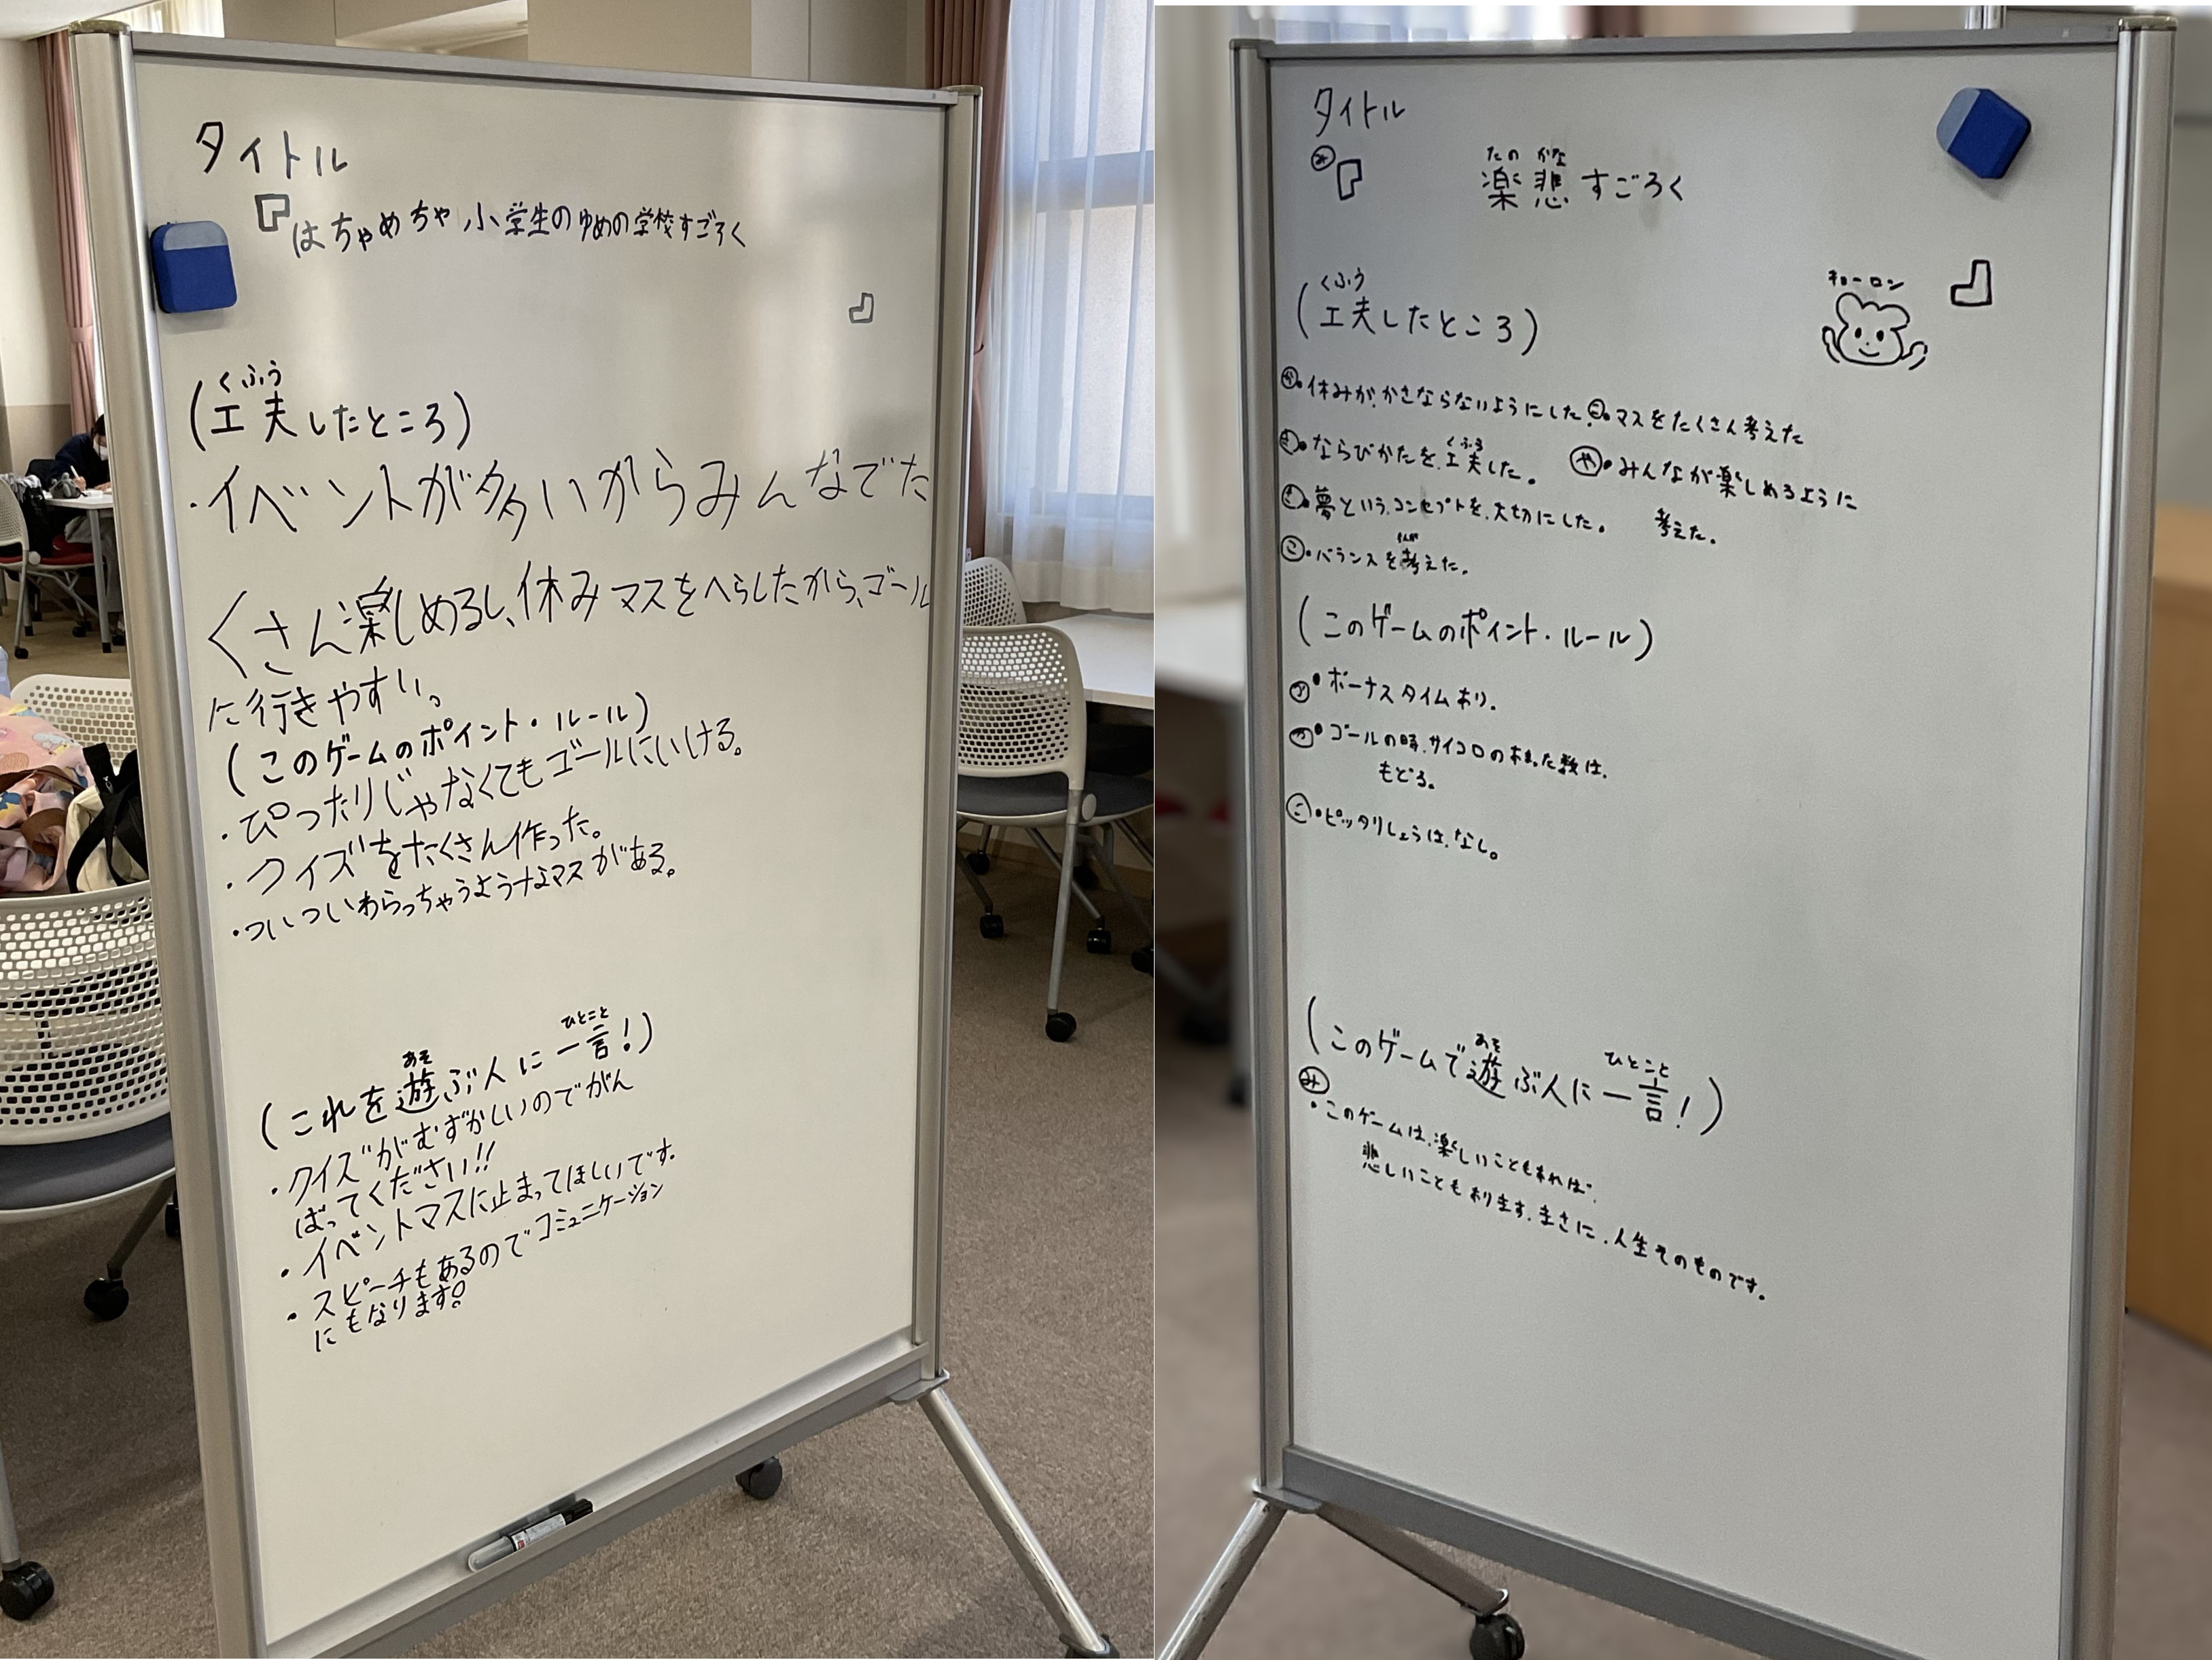 タイトル
『はちゃめちゃ小学生のゆめの学校すごろく
』
くふう
(工夫したところ)
・イベントが多いからみんなでた
くさん楽しめるし、休みマスをへらしたから、ゴール
に行きやすい。
(このゲームのポイント・ルール)
・ぴったりじゃなくてもゴールにいける。
・クイズをたくさん作った。
・ついついわらっちゃうようなマスがある。
あそ ひとこと
(これを遊ぶ人に一言!)
・クイズがむずかしいのでがん
ばってください!!
・イベントマスに止まってほしいです。
・スピーチもあるのでコミュニケーション
にもなります!
タイトル
たの かな
み『 楽悲すごろく
』
キョーロン
くふう
(工夫したところ)
か・休みが、かさならないようにした。こ・マスをたくさん考えた
くふう
き・ならびかたを、工夫した。 や・みんなが楽しめるように
考えた。
き・夢という、コンセプトを、大切にした。
こ・バランスを考えた。
(このゲームのポイント・ルール)
・ボーナスタイムあり。
・ゴールの時、サイコロのあまった数は、
もどる。
こ・ピッタリしょうは、なし。
あそ ひとこと
(このゲームで遊ぶ人に一言!)
み
・このゲームは、楽しいこともあれば、
悲しいこともあります。まさに、人生そのものです。